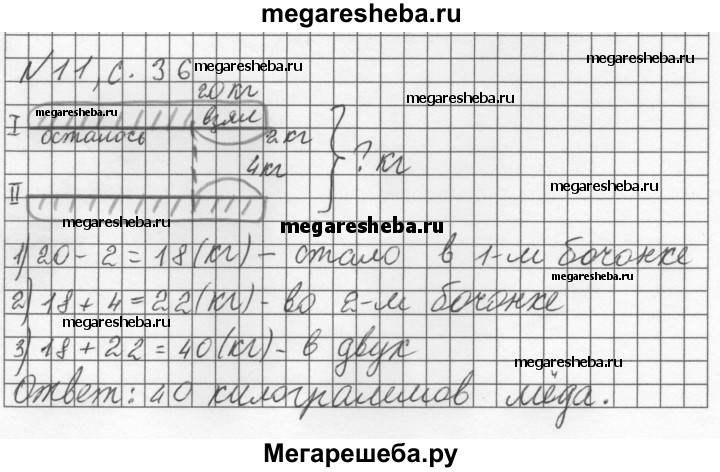 megaresheba.ru
№11, с. 36 megaresheba.ru
megaresheba.ru
20 кг
megaresheba.ru взял
I
осталось 2 кг
4 кг ? кг
II
megaresheba.ru megaresheba.ru
1) 20 - 2 = 18 (кг) - стало в 1-м бочонке
megaresheba.ru
2) 18 + 4 = 22 (кг) - во 2-м бочонке
megaresheba.ru
3) 18 + 22 = 40 (кг) - в двух
megaresheba.ru
Ответ: 40 килограммов мёда.
Мегарешеба.ру